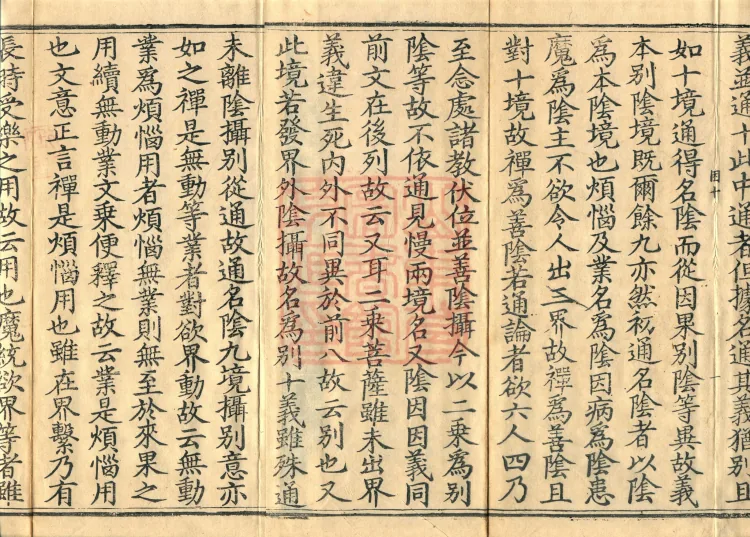 義並通十此中通者但據名通其義猶別且
如十境通得名陰而從因果別陰等異故義
本別陰境既爾餘九亦然初通名陰者以陰
為本陰境也煩惱及業名為陰因病為陰患
魔為陰主不欲令人出三界故禪為善陰且
對十境故禪為善陰若通論者欲六人四乃
至念處諸教伏位並善陰攝今以二乘為別
陰等故不依通見慢兩境名又陰因因義同
前文在後列故云又耳二乘菩薩雖未出界
義違生死內外不同異於前八故云別也又
此境若發界外陰攝故名為別十義雖殊通
未離陰攝別從通故通名陰九境攝別意亦
如之禪是無動等業者對欲界動故云無動
業為煩惱用者煩惱無業則無至於來果之
用續無動業文乘便釋之故云業是煩惱用
也文意正言禪是煩惱用也雖在界繫乃有
長時受樂之用故云用也魔統欲界等者雖